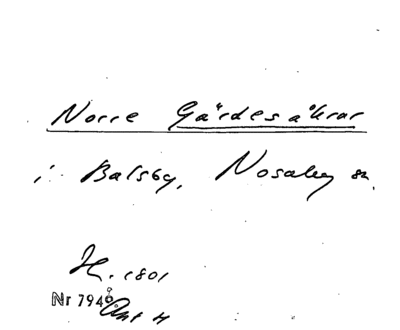 Norre Gärdesåkrar
i Balsby, Nosaby sn.
H. 1801
Nr 794
Akt 4